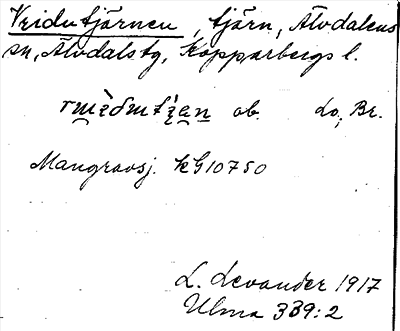 Vridutjärnen, tjärn, Älvdalens
sn, Älvdals tg, Kopparbergs l.
ob. Lo, Br.
Mangraosj. KG 10750
L. Levander 1917
Ulma 339:2